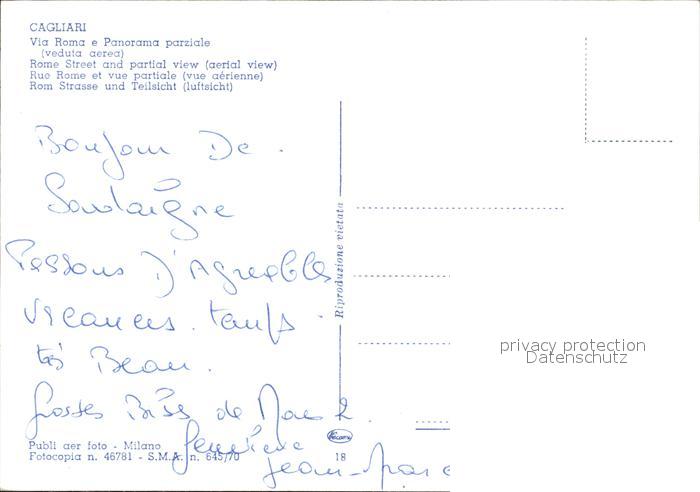 CAGLIARI
Via Roma e Panorama parziale
(veduta aerea)
Rome Street and partial view (aerial view)
Rue Rome et vue partiale (vue aérienne)
Rom Strasse und Teilsicht (luftsicht)
Bonjour De
Sardaigne
Passons D'Agreables
vacances. temps
très Beau.
Grosses Bises de Nous 2.
Geneviève
Jean-Marc
Riproduzione vietata
privacy protection
Datenschutz
Publi aer foto - Milano
Fotocopia n. 46781 - S.M.A. n. 645/70
18